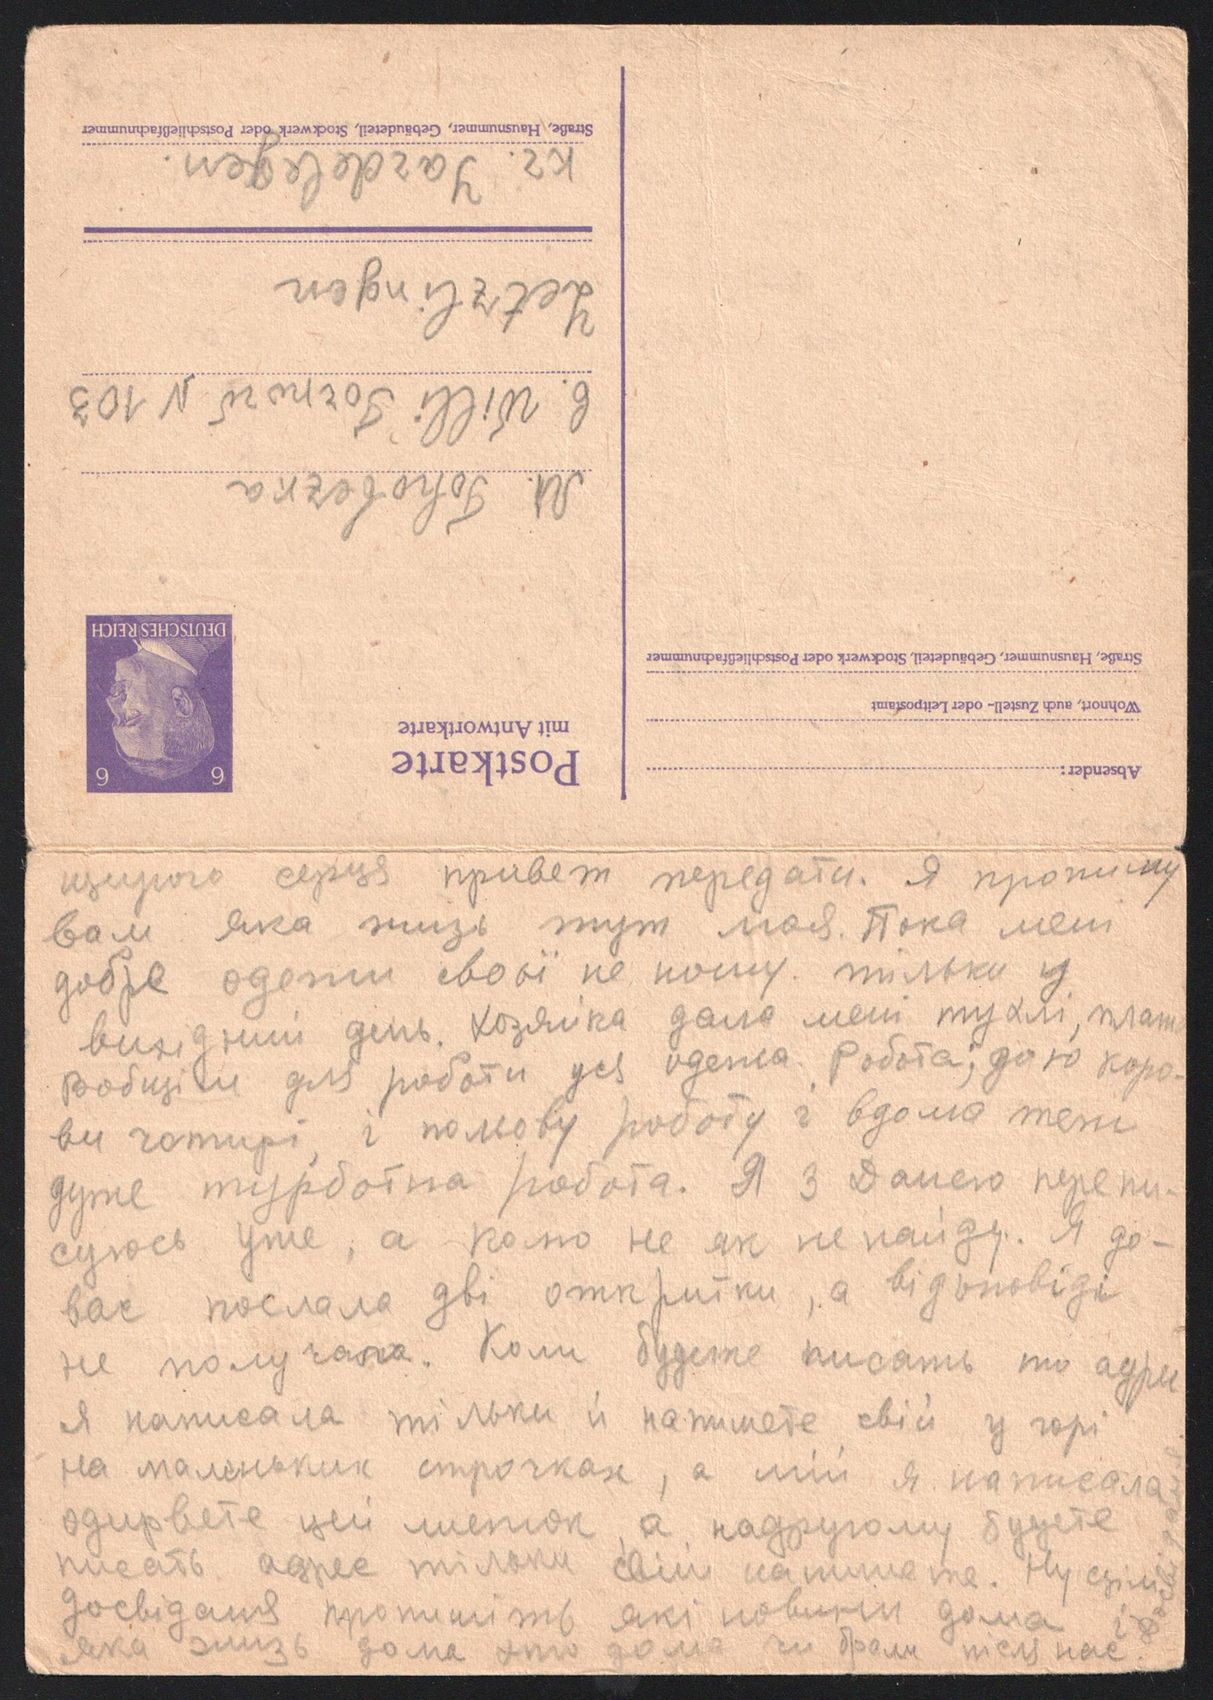 Postkarte
mit Antwortkarte
DEUTSCHES REICH
6 6
M. Tohobezka
b. Willi N 103
Letzlingen
kr. Gardelegen.
Straße, Hausnummer, Gebäudeteil, Stockwerk oder Postschließfachnummer
Absender:
Wohnort, auch Zustell- oder Leitpostamt
Straße, Hausnummer, Gebäudeteil, Stockwerk oder Postschließfachnummer
щирого серця привет передати. Я пропишу
вам яка жизь тут моя. Пока мені
добре одежи своєї не ношу. тільки у
вихідний день. Хозяйка дала мені тухлі, плат
вобщім для роботи уся одежа. Робота; даю коро-
ви чотирі, і польову роботу і вдома теж
дуже турботна робота. Я з Данею перепи-
суюсь уже, а Колю не як не найду. Я до-
вас послала дві откритки, а відповіді
не получала. Коли будете писать то адрес
я написала тільки й напишете свій у горі
на маленьких строчках, а мій я написала
одирвете цей листок а надругому будете
писать адрес тільки свій напишете. Ну цим
досвіданя пропишіть які новини дома і
яка жизь дома хто дома чи брали після нас.
Досвіданя.